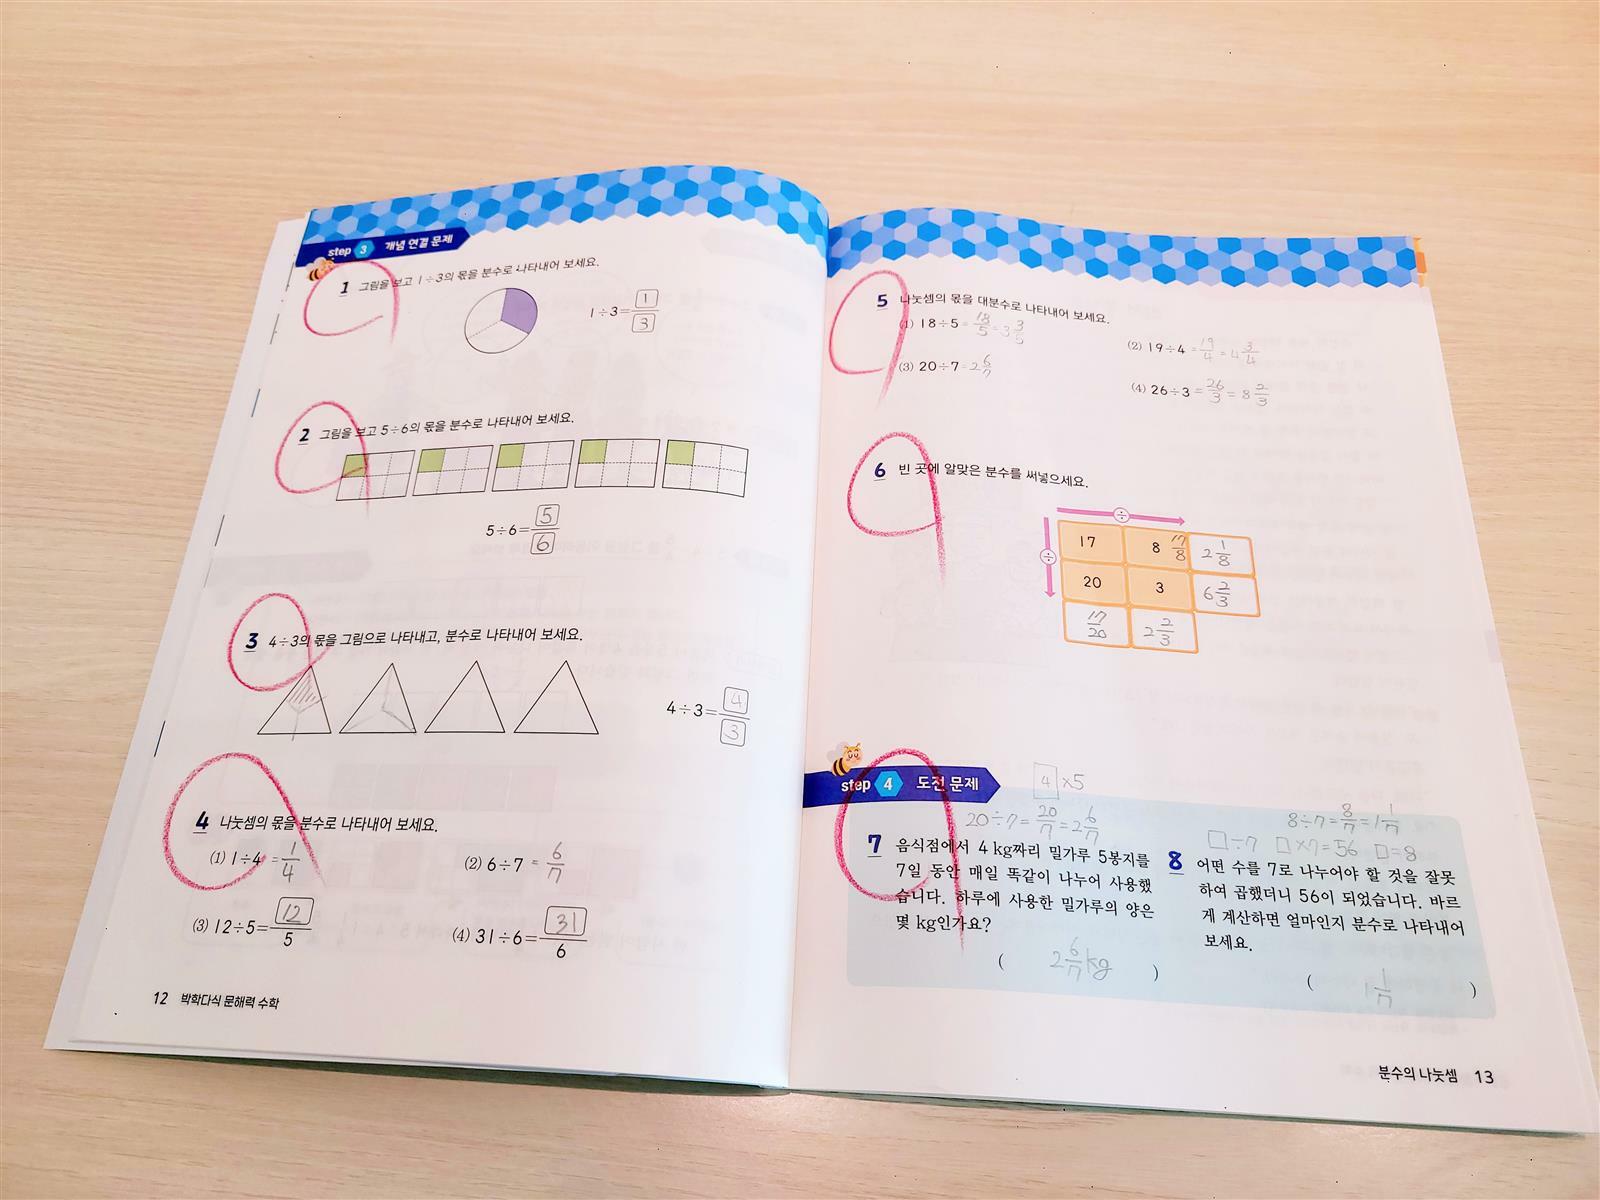 step 3 개념 연결 문제
1 그림을 보고 1÷3의 몫을 분수로 나타내어 보세요.
1÷3=1/3
2 그림을 보고 5÷6의 몫을 분수로 나타내어 보세요.
5÷6=5/6
3 4÷3의 몫을 그림으로 나타내고, 분수로 나타내어 보세요.
4÷3=4/3
4 나눗셈의 몫을 분수로 나타내어 보세요.
(1) 1÷4 =1/4 (2) 6÷7 =6/7
(3) 12÷5=12/5 (4) 31÷6=31/6
12 박학다식 문해력 수학
5 나눗셈의 몫을 대분수로 나타내어 보세요.
(1) 18÷5=18/5=3 3/5 (2) 19÷4=19/4=4 3/4
(3) 20÷7=2 6/7 (4) 26÷3=26/3=8 2/3
6 빈 곳에 알맞은 분수를 써넣으세요.
÷
÷
17 8 17/8 2 1/8
20 3 6 2/3
17/20 2 2/3
step 4 도전 문제
4 ×5
20÷7=20/7=2 6/7
7 음식점에서 4 kg짜리 밀가루 5봉지를
7일 동안 매일 똑같이 나누어 사용했
습니다. 하루에 사용한 밀가루의 양은
몇 kg인가요?
( 2 6/7 kg )
8÷7=8/7=1 1/7
□÷7 □×7=56 □=8
8 어떤 수를 7로 나누어야 할 것을 잘못
하여 곱했더니 56이 되었습니다. 바르
게 계산하면 얼마인지 분수로 나타내어
보세요.
( 1 1/7 )
분수의 나눗셈 13